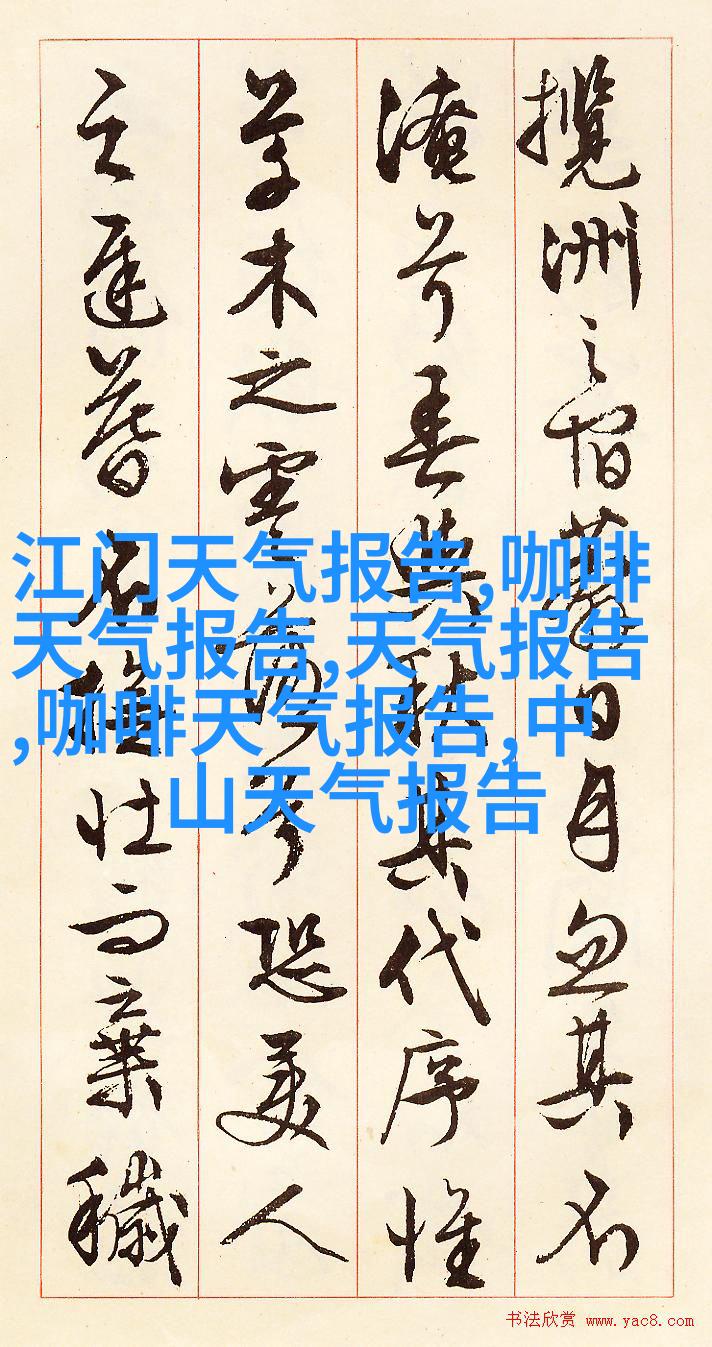 攬洲之宿莽日月忽其不
淹兮春與秋其代序惟
草木之零落兮恐美人
之遲暮不撫壯而棄穢
江门天气报告,咖啡
天气报告,天气报告
,咖啡天气报告,中
山天气报告
书法欣赏 www.yac8.com